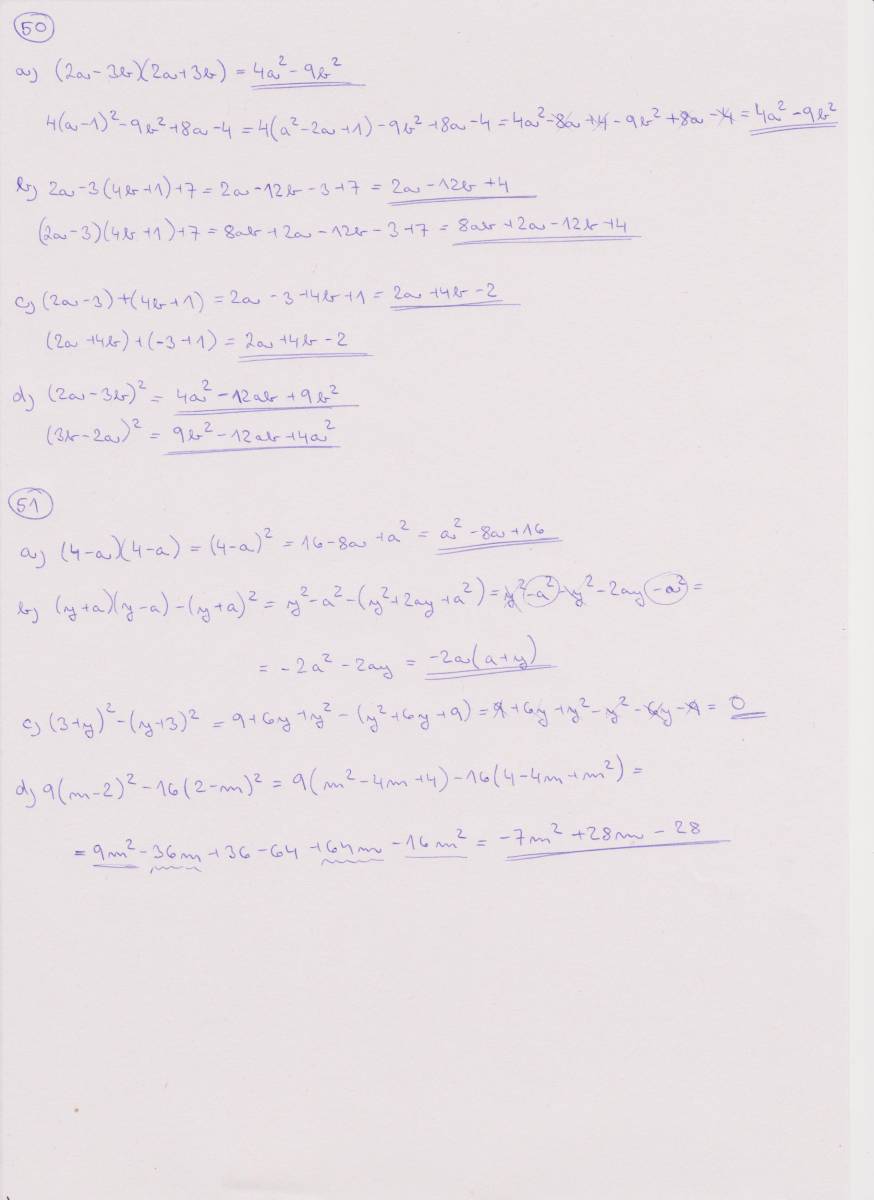 50
a) (2a-3b)(2a+3b) = 4a² - 9b²
4(a-1)² - 9b² + 8a - 4 = 4(a² - 2a + 1) - 9b² + 8a - 4 = 4a² - 8a + 4 - 9b² + 8a - 4 = 4a² - 9b²
b) 2a - 3(4b+1) + 7 = 2a - 12b - 3 + 7 = 2a - 12b + 4
(2a-3)(4b+1) + 7 = 8ab + 2a - 12b - 3 + 7 = 8ab + 2a - 12b + 4
c) (2a-3) + (4b+1) = 2a - 3 + 4b + 1 = 2a + 4b - 2
(2a + 4b) + (-3+1) = 2a + 4b - 2
d) (2a-3b)² = 4a² - 12ab + 9b²
(3b-2a)² = 9b² - 12ab + 4a²
51
a) (4-a)(4-a) = (4-a)² = 16 - 8a + a² = a² - 8a + 16
b) (y+a)(y-a) - (y+a)² = y² - a² - (y² + 2ay + a²) = y² - a² - y² - 2ay - a² =
= -2a² - 2ay = -2a(a+y)
c) (3+y)² - (y+3)² = 9 + 6y + y² - (y² + 6y + 9) = 9 + 6y + y² - y² - 6y - 9 = 0
d) 9(m-2)² - 16(2-m)² = 9(m² - 4m + 4) - 16(4 - 4m + m²) =
= 9m² - 36m + 36 - 64 + 64m - 16m² = -7m² + 28m - 28